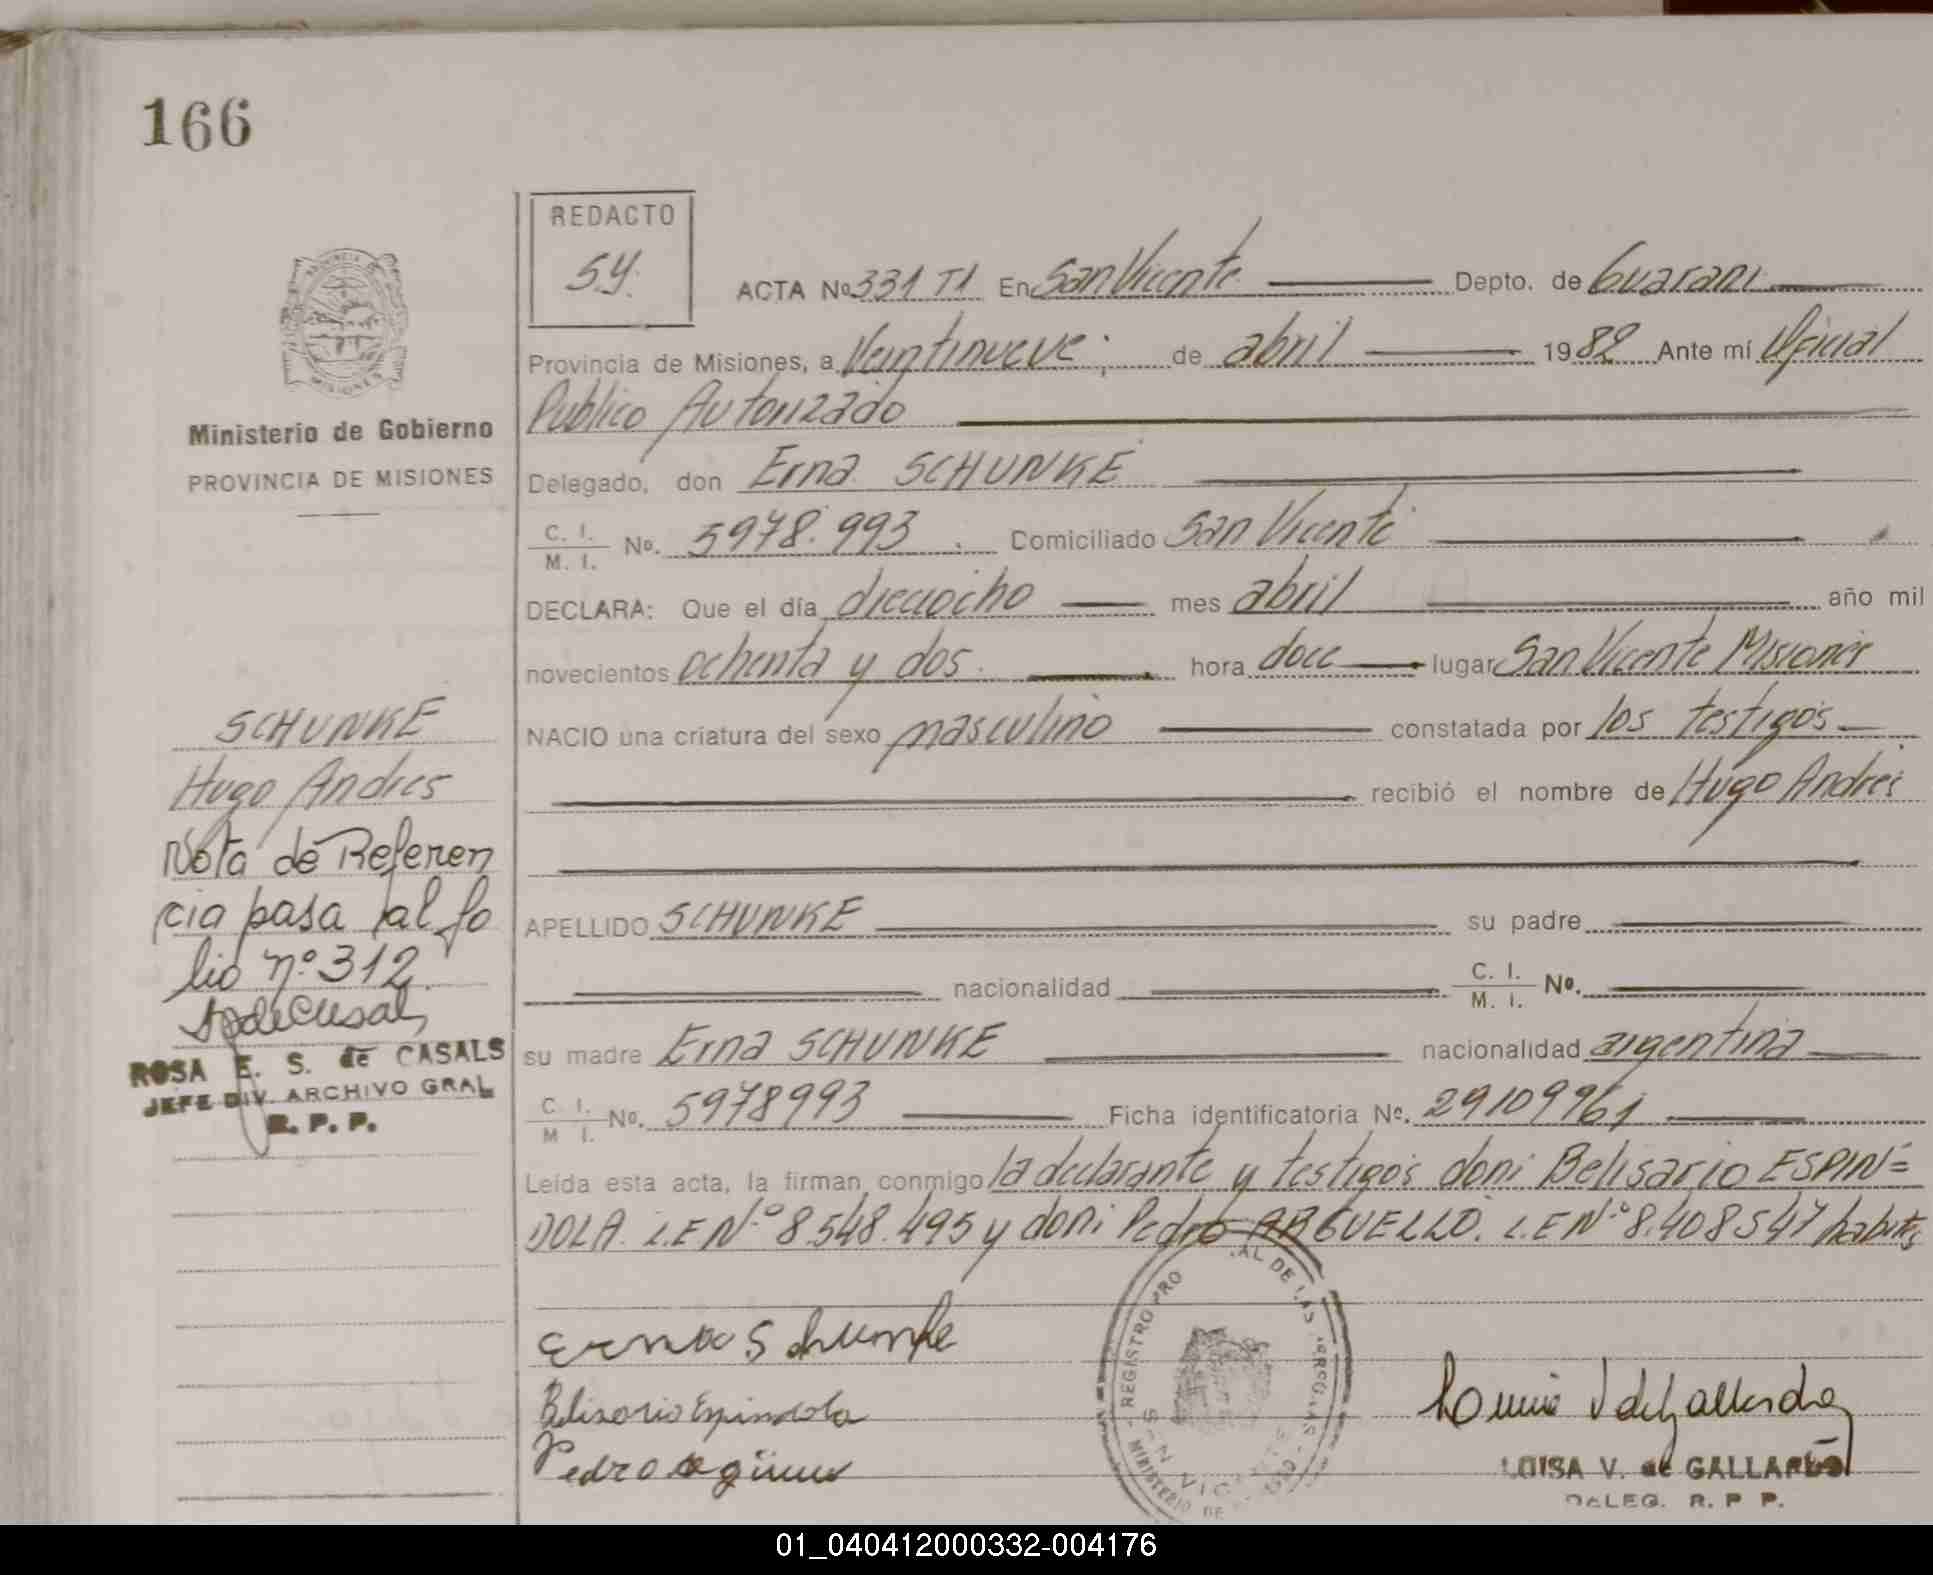 166
REDACTO
SY.
ACTA Nº 331 T1 En San Vicente Depto. de Guarani
Provincia de Misiones, a Veintinueve de abril 1982 Ante mí Oficial
Publico Autorizado
Ministerio de Gobierno
PROVINCIA DE MISIONES
Delegado, don Erna SCHUNKE
C. I. / M. I. No. 5978.993 Domiciliado San Vicente
DECLARA: Que el día dieciocho mes abril año mil
novecientos ochenta y dos. hora doce lugar San Vicente Misiones
NACIO una criatura del sexo masculino constatada por los testigos
recibió el nombre de Hugo Andres
APELLIDO SCHUNKE su padre
nacionalidad C. I. / M. I. Nº.
su madre Erna SCHUNKE nacionalidad argentina
C. I. / M I. No. 5978993 Ficha identificatoria Nº. 29109961
Leída esta acta, la firman conmigo la declarante y testigos doni Belisario ESPIN=
DOLA. L.E Nº 8.548.495 y doni Pedro ARGUELLO. L.E Nº 8.408547 habites
SCHUNKE
Hugo Andres
Nota de Referen
cia pasa al fo
lio nº 312.
ROSA E. S. de CASALS
JEFE DIV. ARCHIVO GRAL
R. P. P.
Erna Schunke
Belisario Espindola
Pedro
REGISTRO PRO AL DE LAS
MINISTERIO DE
LUISA V. de GALLARDO
DELEG. R. P P.
01_040412000332-004176